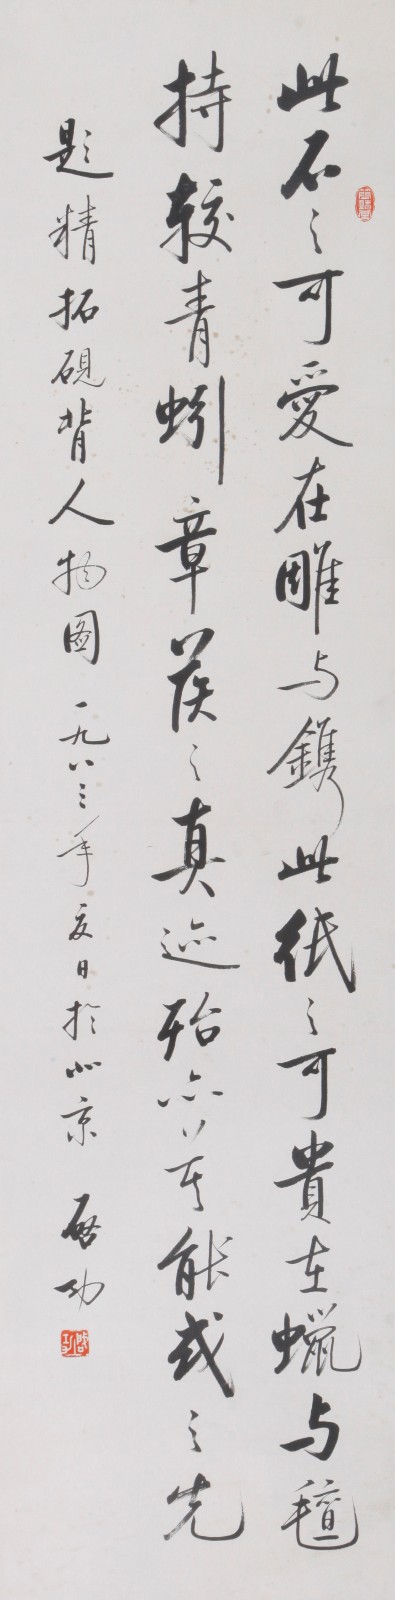 此石之可愛在雕与鐫此紙之可貴在蠟与氈
持較青蚓章侯之真迹殆亦莫能或之先
题精拓硯背人物图 一九八三年夏日於北京 啓功